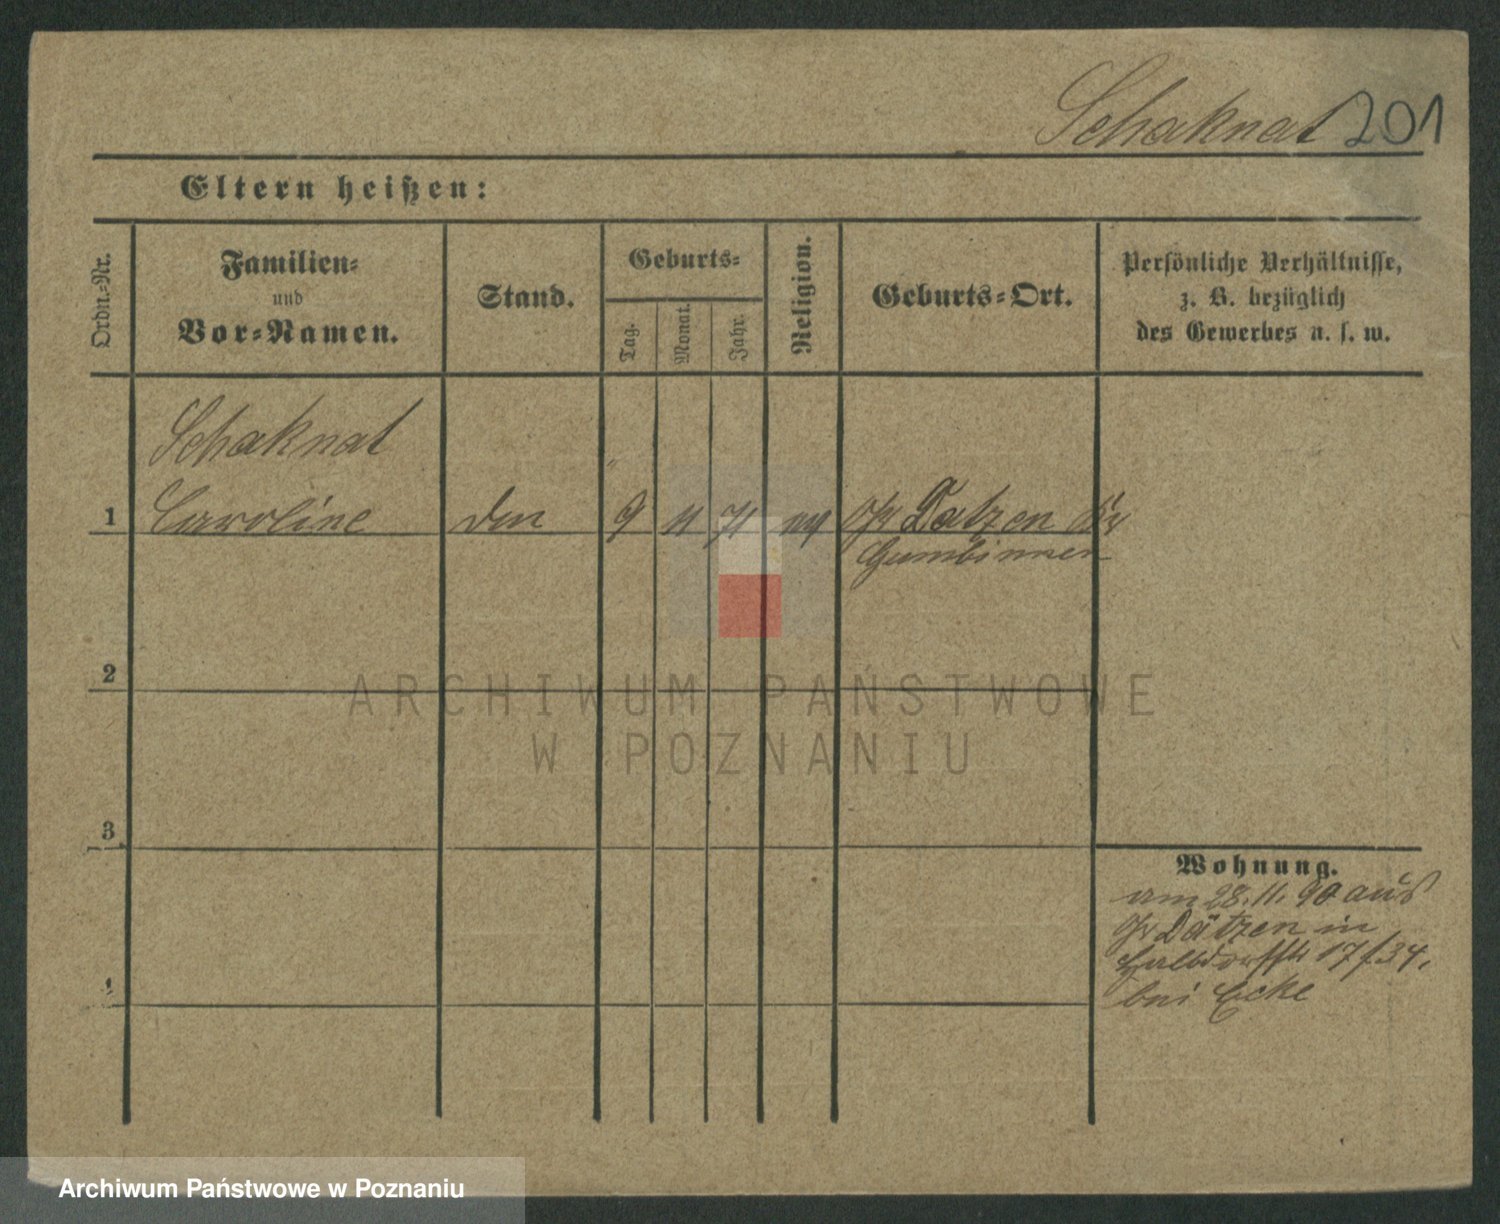 Schaknat 201
Eltern heißen:
Ordn.-Nr.
Familien-
und
Vor-Namen.
Stand.
Geburts-
Tag.
Monat.
Jahr.
Religion.
Geburts-Ort.
Persönliche Verhältnisse,
z. B. bezüglich
des Gewerbes u. s. w.
Schaknat
1 Caroline 9 11 71 Gr Datzen Kr
Gumbinnen
2
3
4
ARCHIWUM PAŃSTWOWE
W POZNANIU
Wohnung.
am 28.11.90 aus
Gr Dätzen in
Halbdorfstr 17 34.
bei Ecke
Archiwum Państwowe w Poznaniu